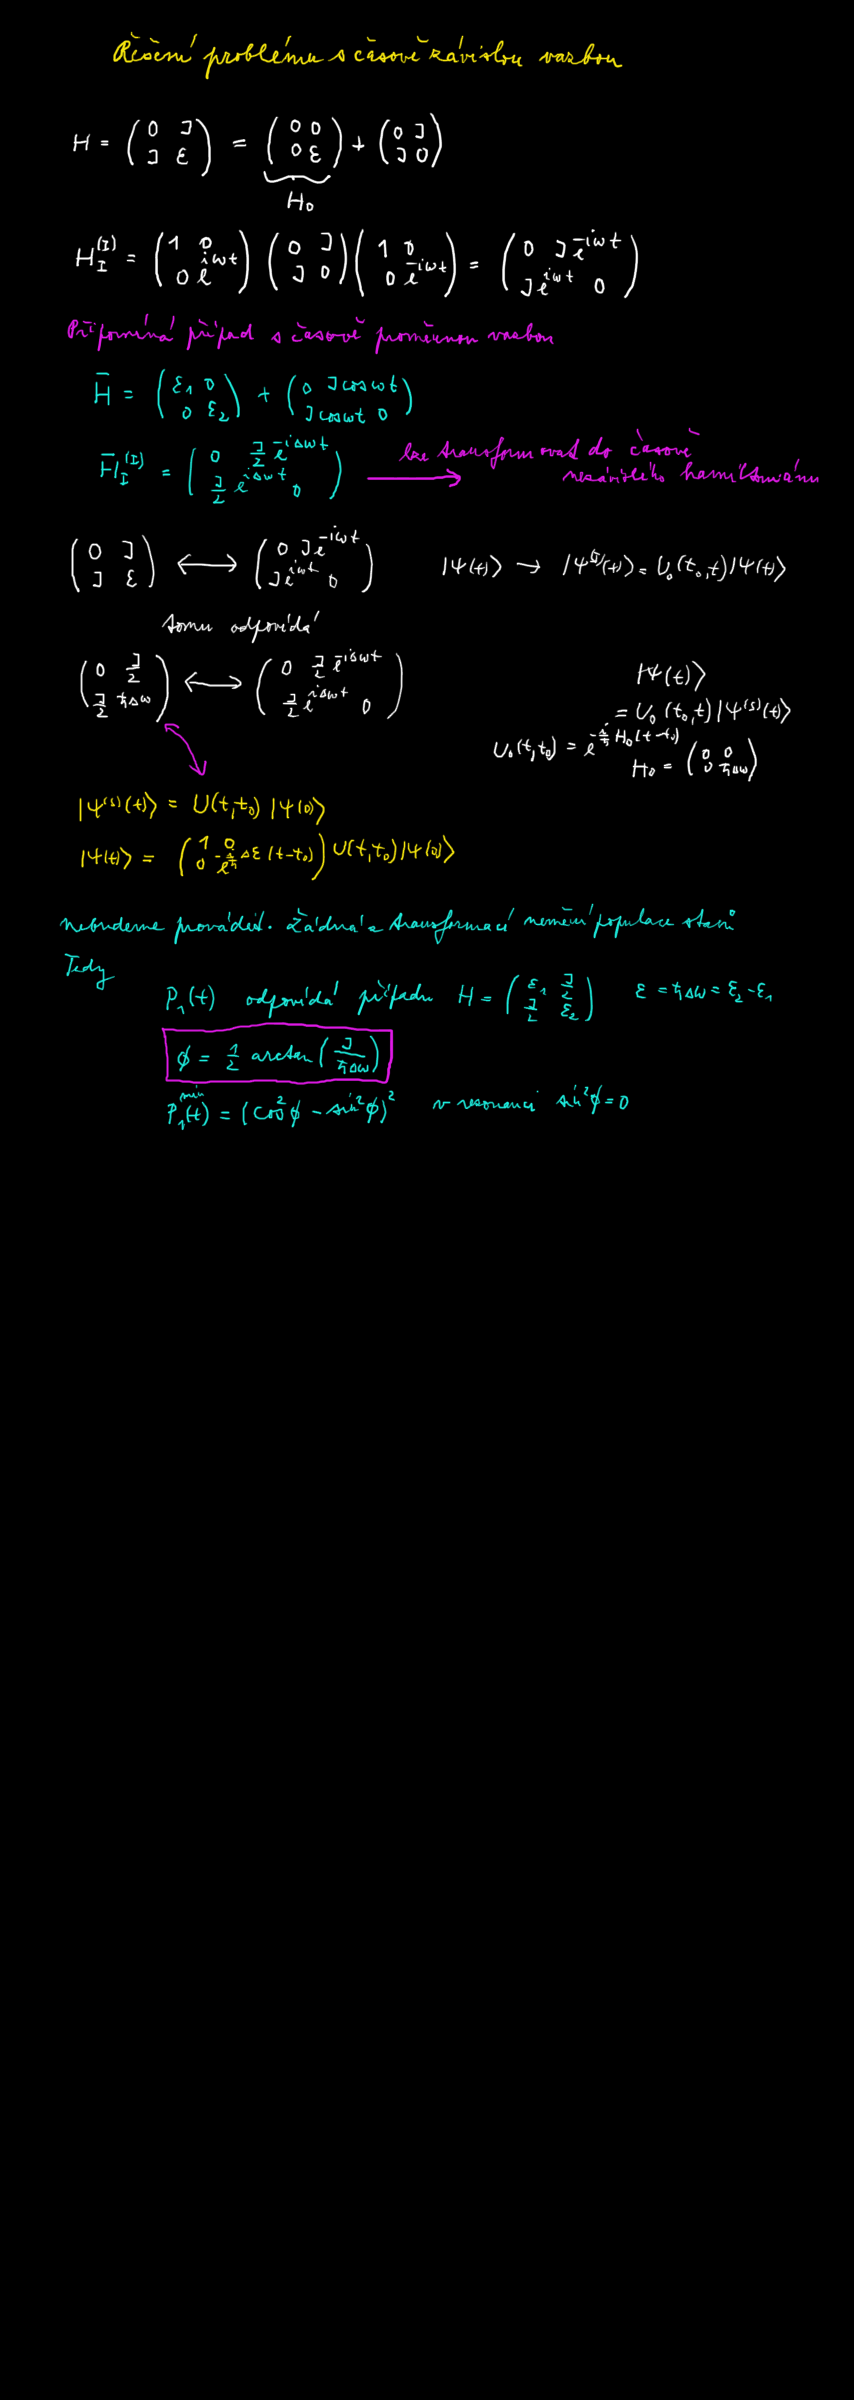 Řešení problému s časově závislou vazbou
H = ( 0 J ; J ε ) = ( 0 0 ; 0 ε ) + ( 0 J ; J 0 )
H₀
H_I^(I) = ( 1 0 ; 0 e^{iωt} ) ( 0 J ; J 0 ) ( 1 0 ; 0 e^{-iωt} ) = ( 0 J e^{-iωt} ; J e^{iωt} 0 )
Připomíná případ s časově proměnnou vazbou
H̄ = ( ε₁ 0 ; 0 ε₂ ) + ( 0 J cos ωt ; J cos ωt 0 )
H̄_I^(I) = ( 0 J/2 e^{-iΔωt} ; J/2 e^{iΔωt} 0 ) → lze transformovat do časově
nezávislého hamiltoniánu
( 0 J ; J ε ) ↔ ( 0 J e^{-iωt} ; J e^{iωt} 0 ) |ψ(t)⟩ → |ψ^(I)(t)⟩ = U₀(t₀,t)|ψ(t)⟩
tomu odpovídá
( 0 J/2 ; J/2 ℏΔω ) ↔ ( 0 J/2 e^{-iΔωt} ; J/2 e^{iΔωt} 0 )
|ψ(t)⟩
= U₀(t₀,t)|ψ^(s)(t)⟩
U₀(t,t₀) = e^{-i/ℏ H₀(t-t₀)}
H₀ = ( 0 0 ; 0 ℏΔω )
|ψ^(s)(t)⟩ = U(t,t₀)|ψ(0)⟩
|ψ(t)⟩ = ( 1 0 ; 0 e^{-i/ℏ Δε(t-t₀)} ) U(t,t₀)|ψ(0)⟩
nebudeme provádět. Žádná z transformací nemění populace stavů
Tedy
P₁(t) odpovídá případu H = ( ε₁ J/2 ; J/2 ε₂ ) ε = ℏΔω = ε₂ - ε₁
ϕ = 1/2 arctan ( J/ℏΔω )
P₁^min(t) = (cos²ϕ - sin²ϕ)² v resonanci sin²ϕ = 0